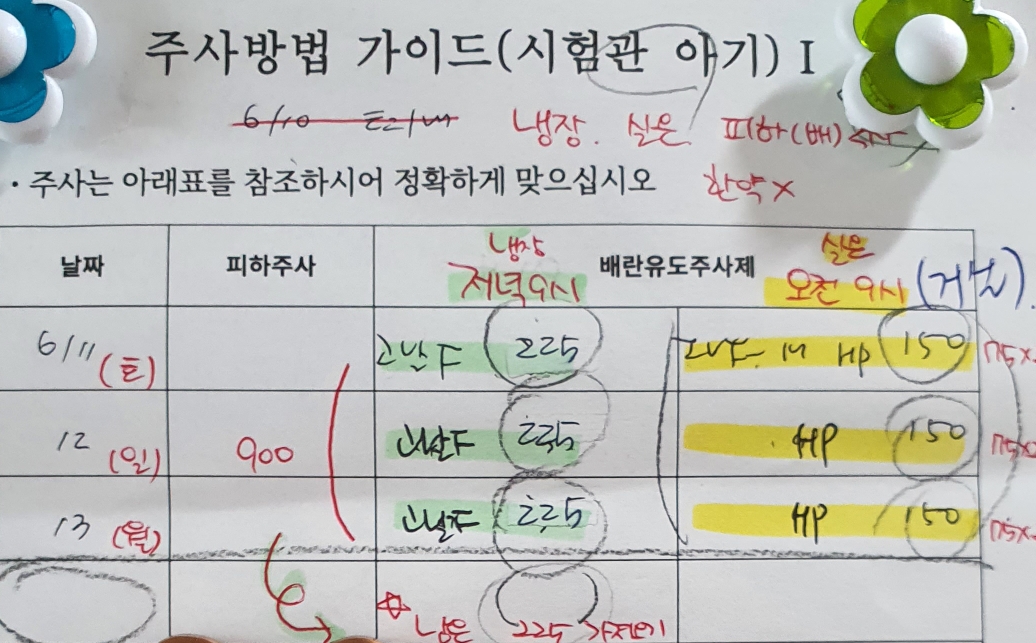 주사방법 가이드(시험관 아기) I
6/10
냉장. 실온. 피하(배)
· 주사는 아래표를 참조하시어 정확하게 맞으십시오 한약X
날짜 피하주사 배란유도주사제
냉장 실온
저녁 9시 오전 9시
6/11 (토) 고날F 225 HP 150 75x
12 (일) 900 고날F 225 HP 150 75x
13 (월) 고날F 225 HP 150 75x
남은 225 가져오기